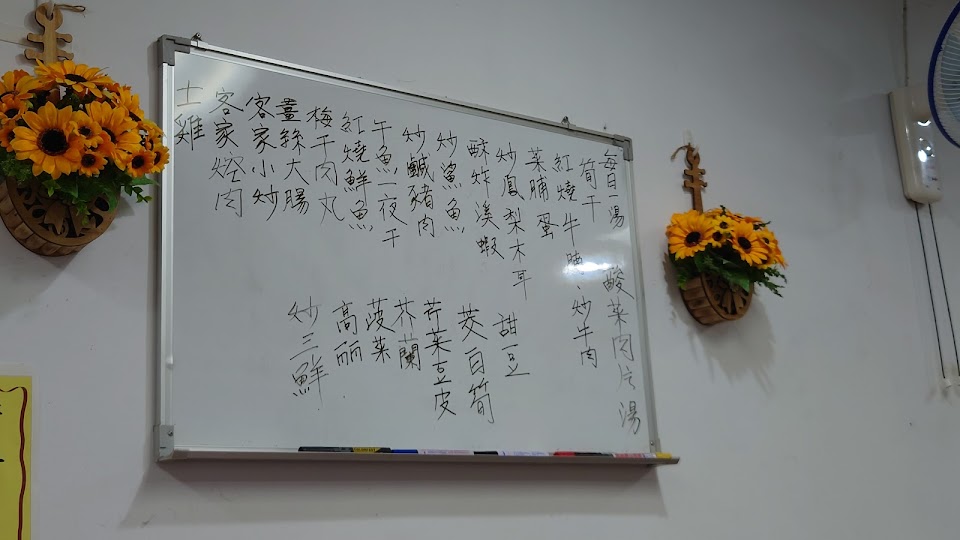 每日一湯 酸菜肉片湯
筍干
紅燒牛腩、炒牛肉
菜脯蛋
炒鳳梨木耳
酥炸溪蝦
炒鯊魚
炒鹹豬肉
午魚一夜干
紅燒鮮魚
梅干肉丸
薑絲大腸
客家小炒
客家焢肉
土雞
甜豆
茭白筍
芹菜豆皮
芥蘭
菠菜
高丽
炒三鮮